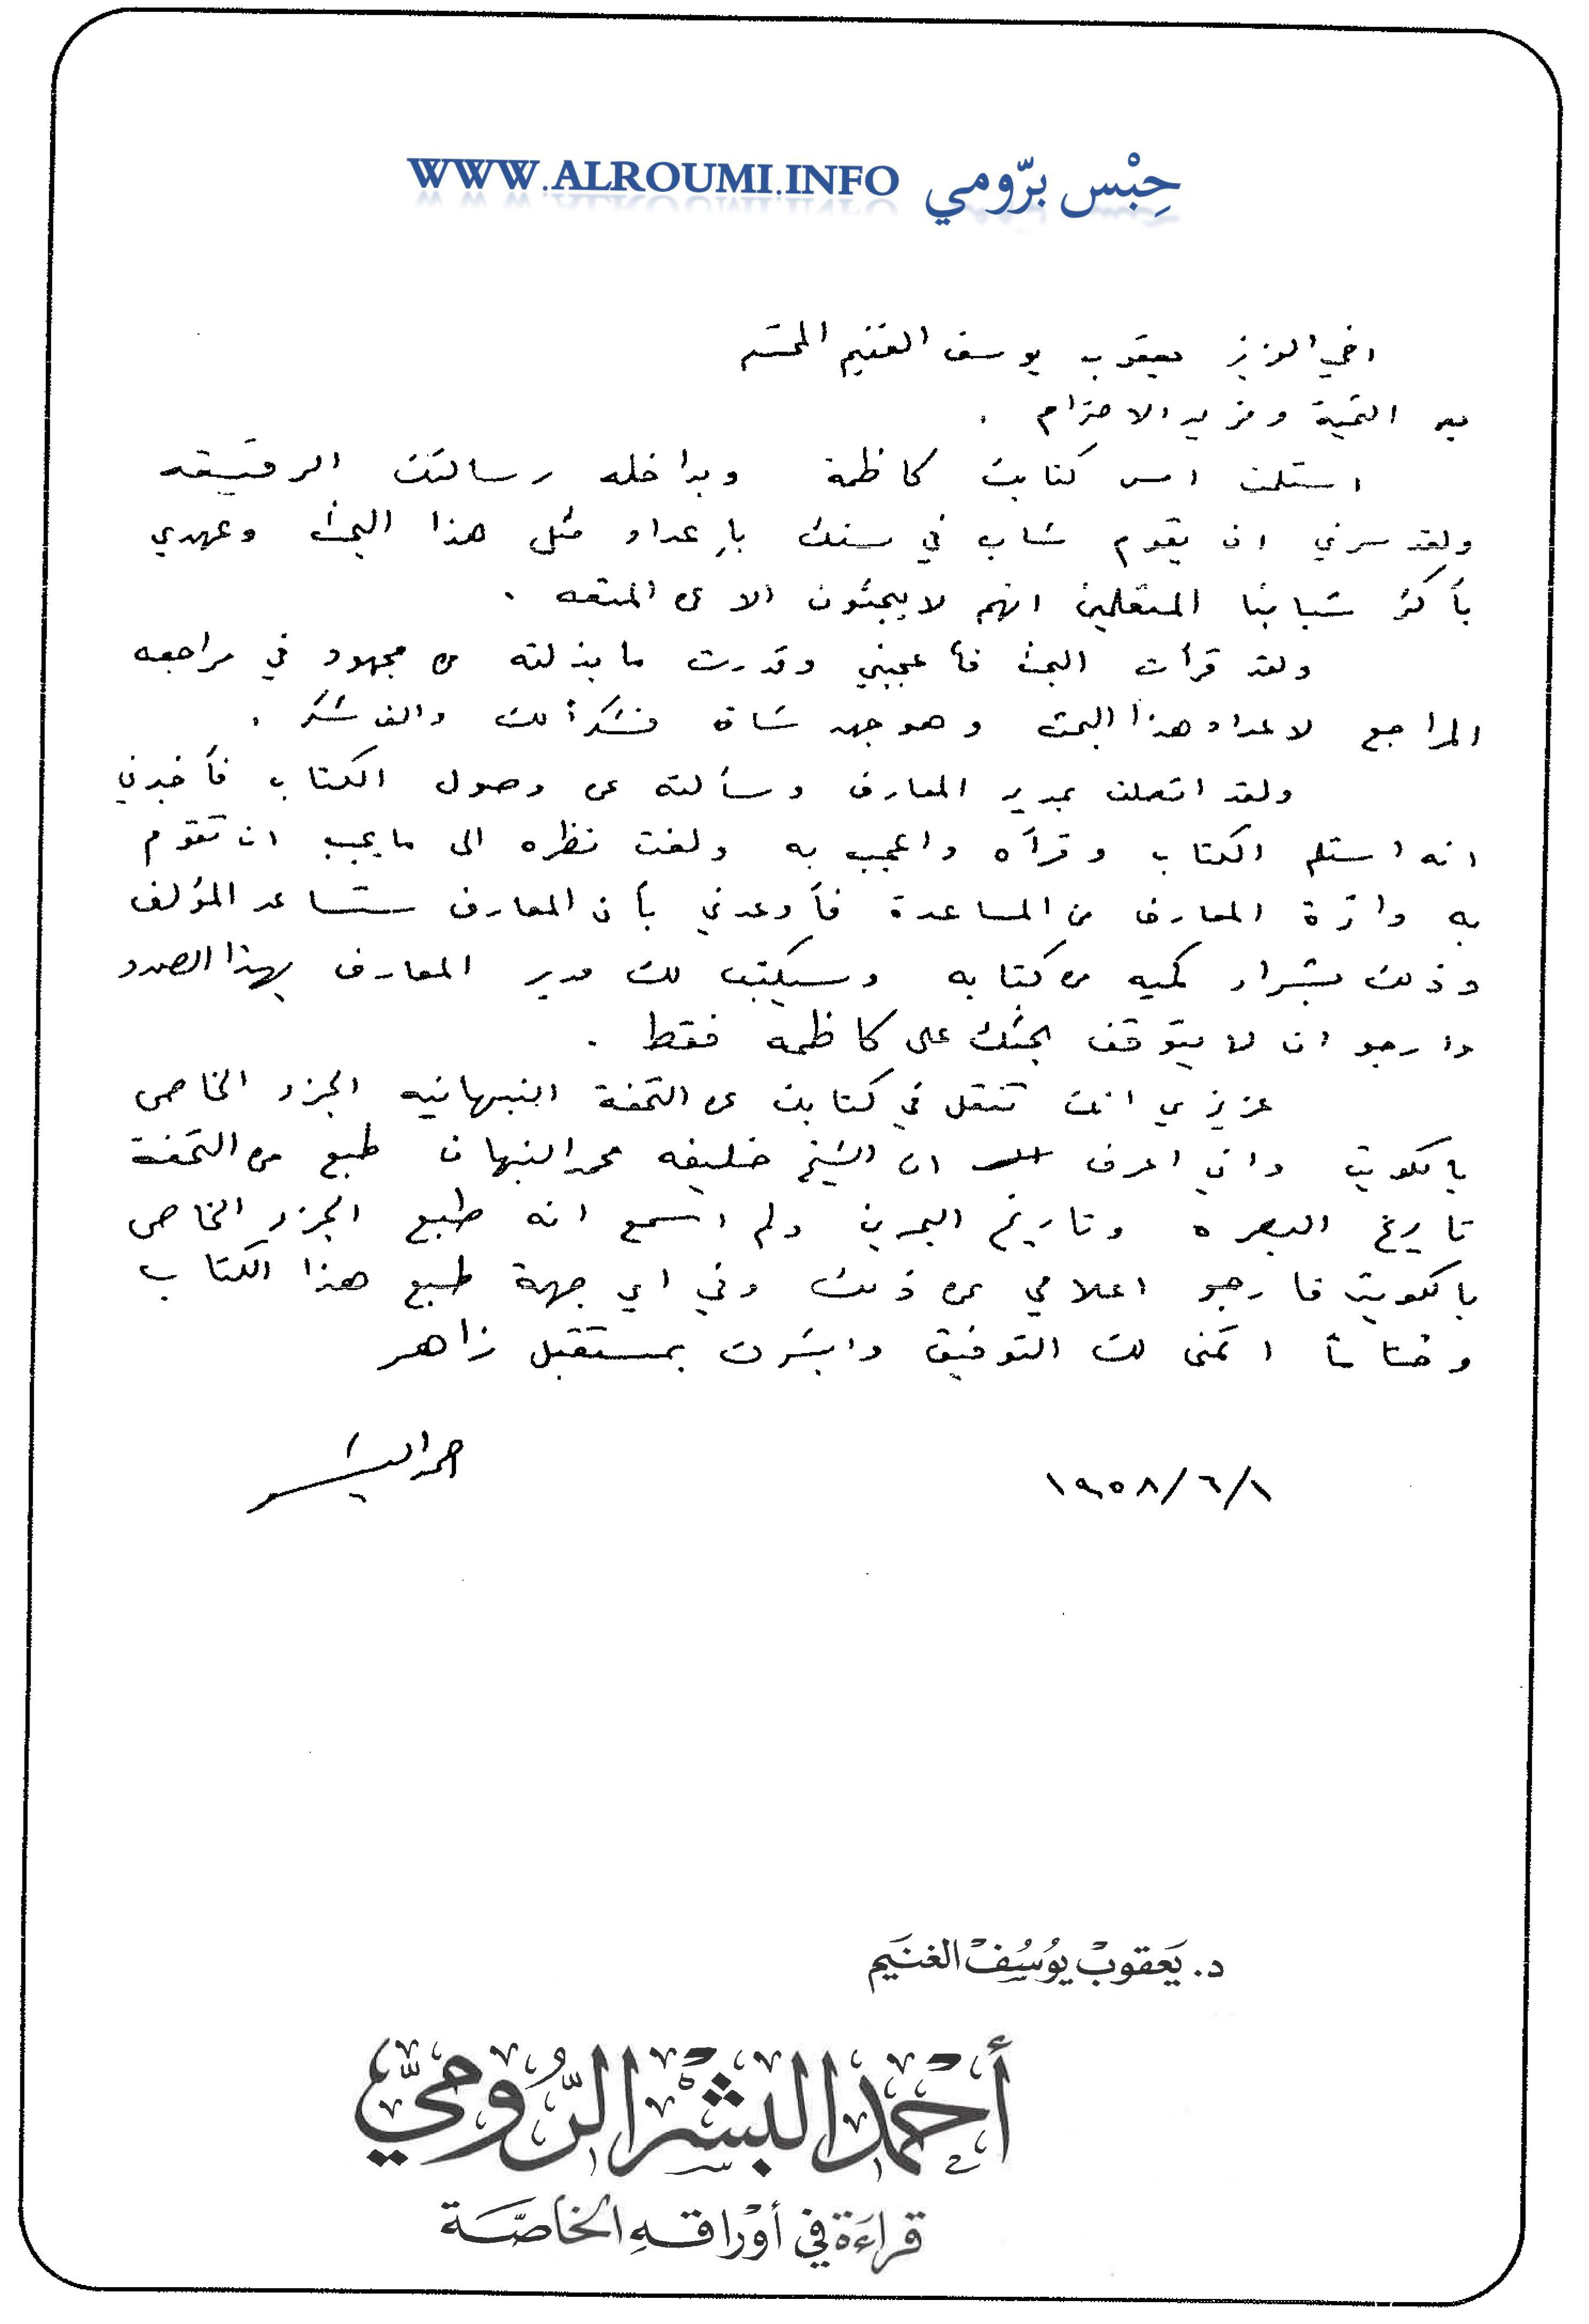 حِبْس برّومي WWW.ALROUMI.INFO
اخي العزيز يعقوب يوسف الغنيم المحترم
بعد التحية ومزيد الاحترام .
استلمت امس كتابك كاظمة وبداخله رسالتك الرقيقه
ولقد سرني ان يقوم شاب في سنك بإعداد مثل هذا البحث وعهدي
بأكثر شبابنا المتعلمين انهم لا يبحثون الا عن المتعه .
ولقد قرأت البحث فأعجبني وقدرت ما بذلته من مجهود في مراجعه
المراجع لاعداد هذا البحث وهو جهد شاق فشكراً لك والف شكر .
ولقد اتصلت بمدير المعارف وسألته عن وصول الكتاب فأخبرني
انه استلم الكتاب وقرأه واعجب به ولفت نظره الى ما يجب ان تقوم
به دائرة المعارف من المساعدة فأوعدني بأن المعارف ستساعد المؤلف
وذلك بشراء كميه من كتابه وسيكتب لك مدير المعارف بهذا الصدد
وارجو ان لا يتوقف بحثك على كاظمه فقط .
عزيزي انك تنقل في كتابك عن التحفة النبهانيه الجزء الخاص
بالكويت واني اعرف ان الشيخ خليفه محمد النبهان طبع من التحفة
تاريخ البصره وتاريخ البحرين ولم اسمع انه طبع الجزء الخاص
بالكويت فارجو اعلامي عن ذلك وفي اي جهة طبع هذا الكتاب
وختاماً اتمنى لك التوفيق وابشرك بمستقبل زاهر
١٩٥٨/٦/١ احمد البشر
د. يَعقوبْ يوُسُفْ الغنَيم
أحْمَد البشْر الرُّومِيّ
قراءَة في أوْراقهِ الخاصَّة